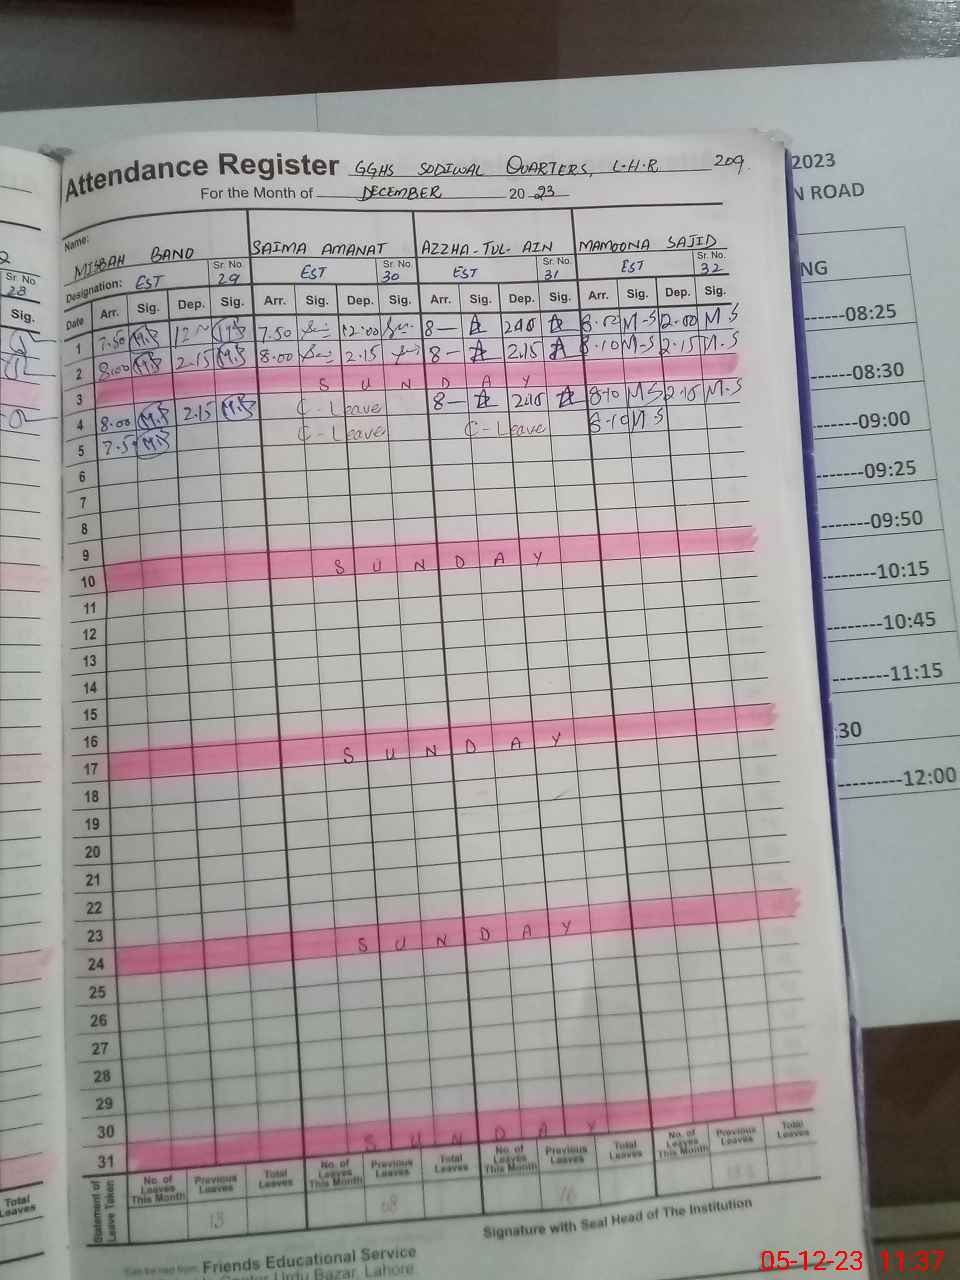 Attendance Register GGHS SODIWAL QUARTERS, L-H-R. 209.
For the Month of DECEMBER 2023
Name: MISBAH BANO SAIMA AMANAT AZZHA-TUL-AIN MAMOONA SAJID
Designation: EST Sr. No. 29 EST Sr. No. 30 EST Sr. No. 31 EST Sr. No. 32
Date Arr. Sig. Dep. Sig. Arr. Sig. Dep. Sig. Arr. Sig. Dep. Sig. Arr. Sig. Dep. Sig.
1 7.50 M.B 12 M.B 7.50 12.00 8- M-S 2.00 M S
2 8.00 M.B 2.15 M.B 8.00 2.15 8- 2.15 8.10 M-S 2.15 M.S
3 SUNDAY
4 8.00 M.B 2.15 M.B C-Leave 8- 8.10 M S 2.15 M-S
5 M.B C-Leave C-Leave 8.10 M S
6
7
8
9
10 SUNDAY
11
12
13
14
15
16
17 SUNDAY
18
19
20
21
22
23
24 SUNDAY
25
26
27
28
29
30
31 SUNDAY
Statement of Leave Taken
No. of Leaves This Month Previous Leaves Total Leaves No. of Leaves This Month Previous Leaves Total Leaves No. of Leaves This Month Previous Leaves Total Leaves No. of Leaves This Month Previous Leaves Total Leaves
13 08 16
Signature with Seal Head of The Institution
Friends Educational Service
Urdu Bazar, Lahore
Sr. No.
28
Sig.
Total Leaves
2023
N ROAD
NG
------08:25
-------08:30
------09:00
-------09:25
-------09:50
--------10:15
--------10:45
---------11:15
:30
---------12:00
05-12-23 11:37